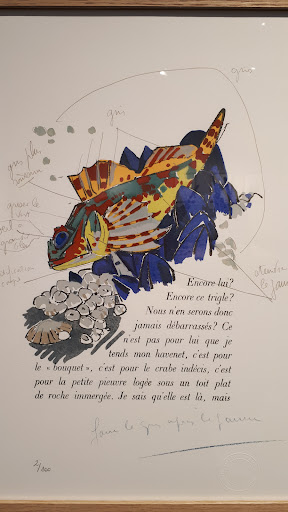 gris
gris
gris plus
Encore lui?
Encore ce trigle?
Nous n'en serons donc
jamais débarrassés? Ce
n'est pas pour lui que je
tends mon havenet, c'est pour
le « bouquet », c'est pour le crabe indécis, c'est
pour la petite pieuvre logée sous un toit plat
de roche immergée. Je sais qu'elle est là, mais
faire le gris après le jaune